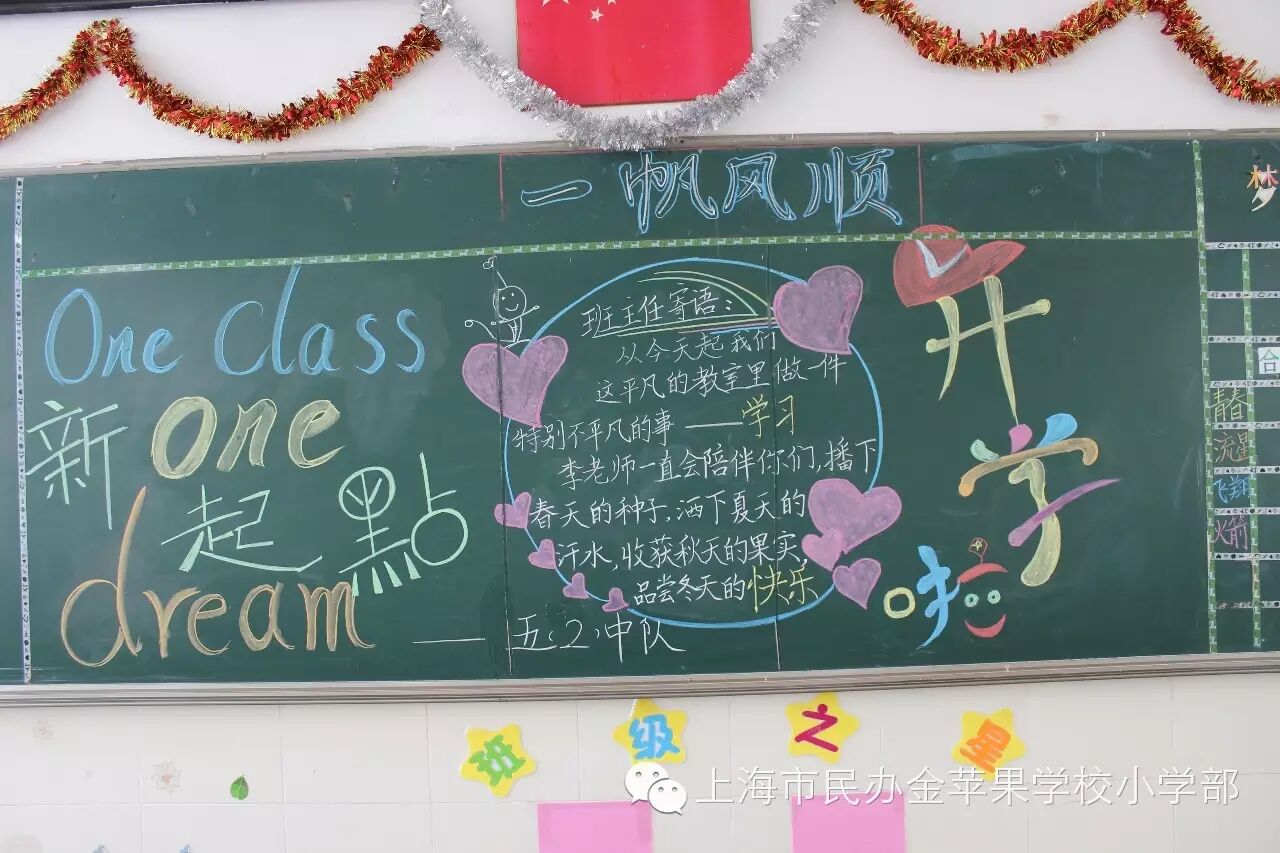 一帆风顺
One Class
新 one
起點
dream
班主任寄语：
从今天起我们
这平凡的教室里做一件
特别不平凡的事——学习
李老师一直会陪伴你们,播下
春天的种子,洒下夏天的
汗水,收获秋天的果实,
品尝冬天的快乐
——五(2)中队
开
学
啦
梦
合
青春
流星
飞翔
火箭
班级之星
上海市民办金苹果学校小学部